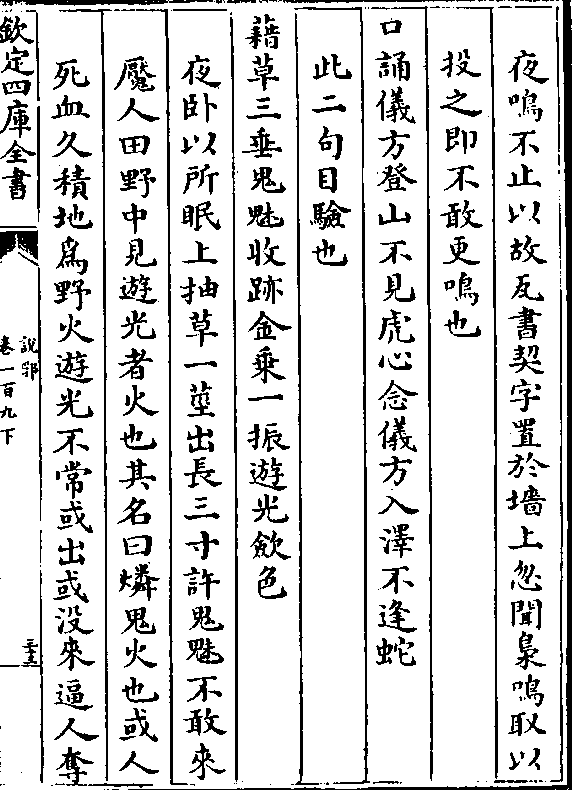 夜鳴不止以故瓦書契字置於墻上忽聞梟鳴取以
投之即不敢更鳴也
口誦儀方登山不見虎心念儀方入澤不逢蛇
此二句目驗也
藉草三垂鬼魅收跡金乗一振遊光歛色
夜卧以所眠上抽草一莖出長三寸許鬼魅不敢來
魘人田野中見遊光者火也其名曰燐鬼火也或人
死血久積地爲野火遊光不常或出或没來逼人奪
欽定四庫全書
說郛
卷一百九下
三十五